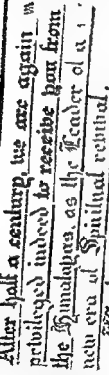 After half a century, we are again
privileged indeed to receive you from
the Himalayas as the Leader of a
new era of Spiritual revival.